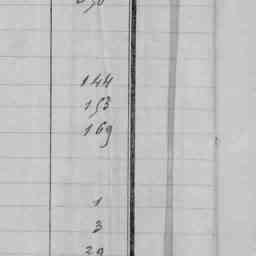 144
153
169
1
3
29